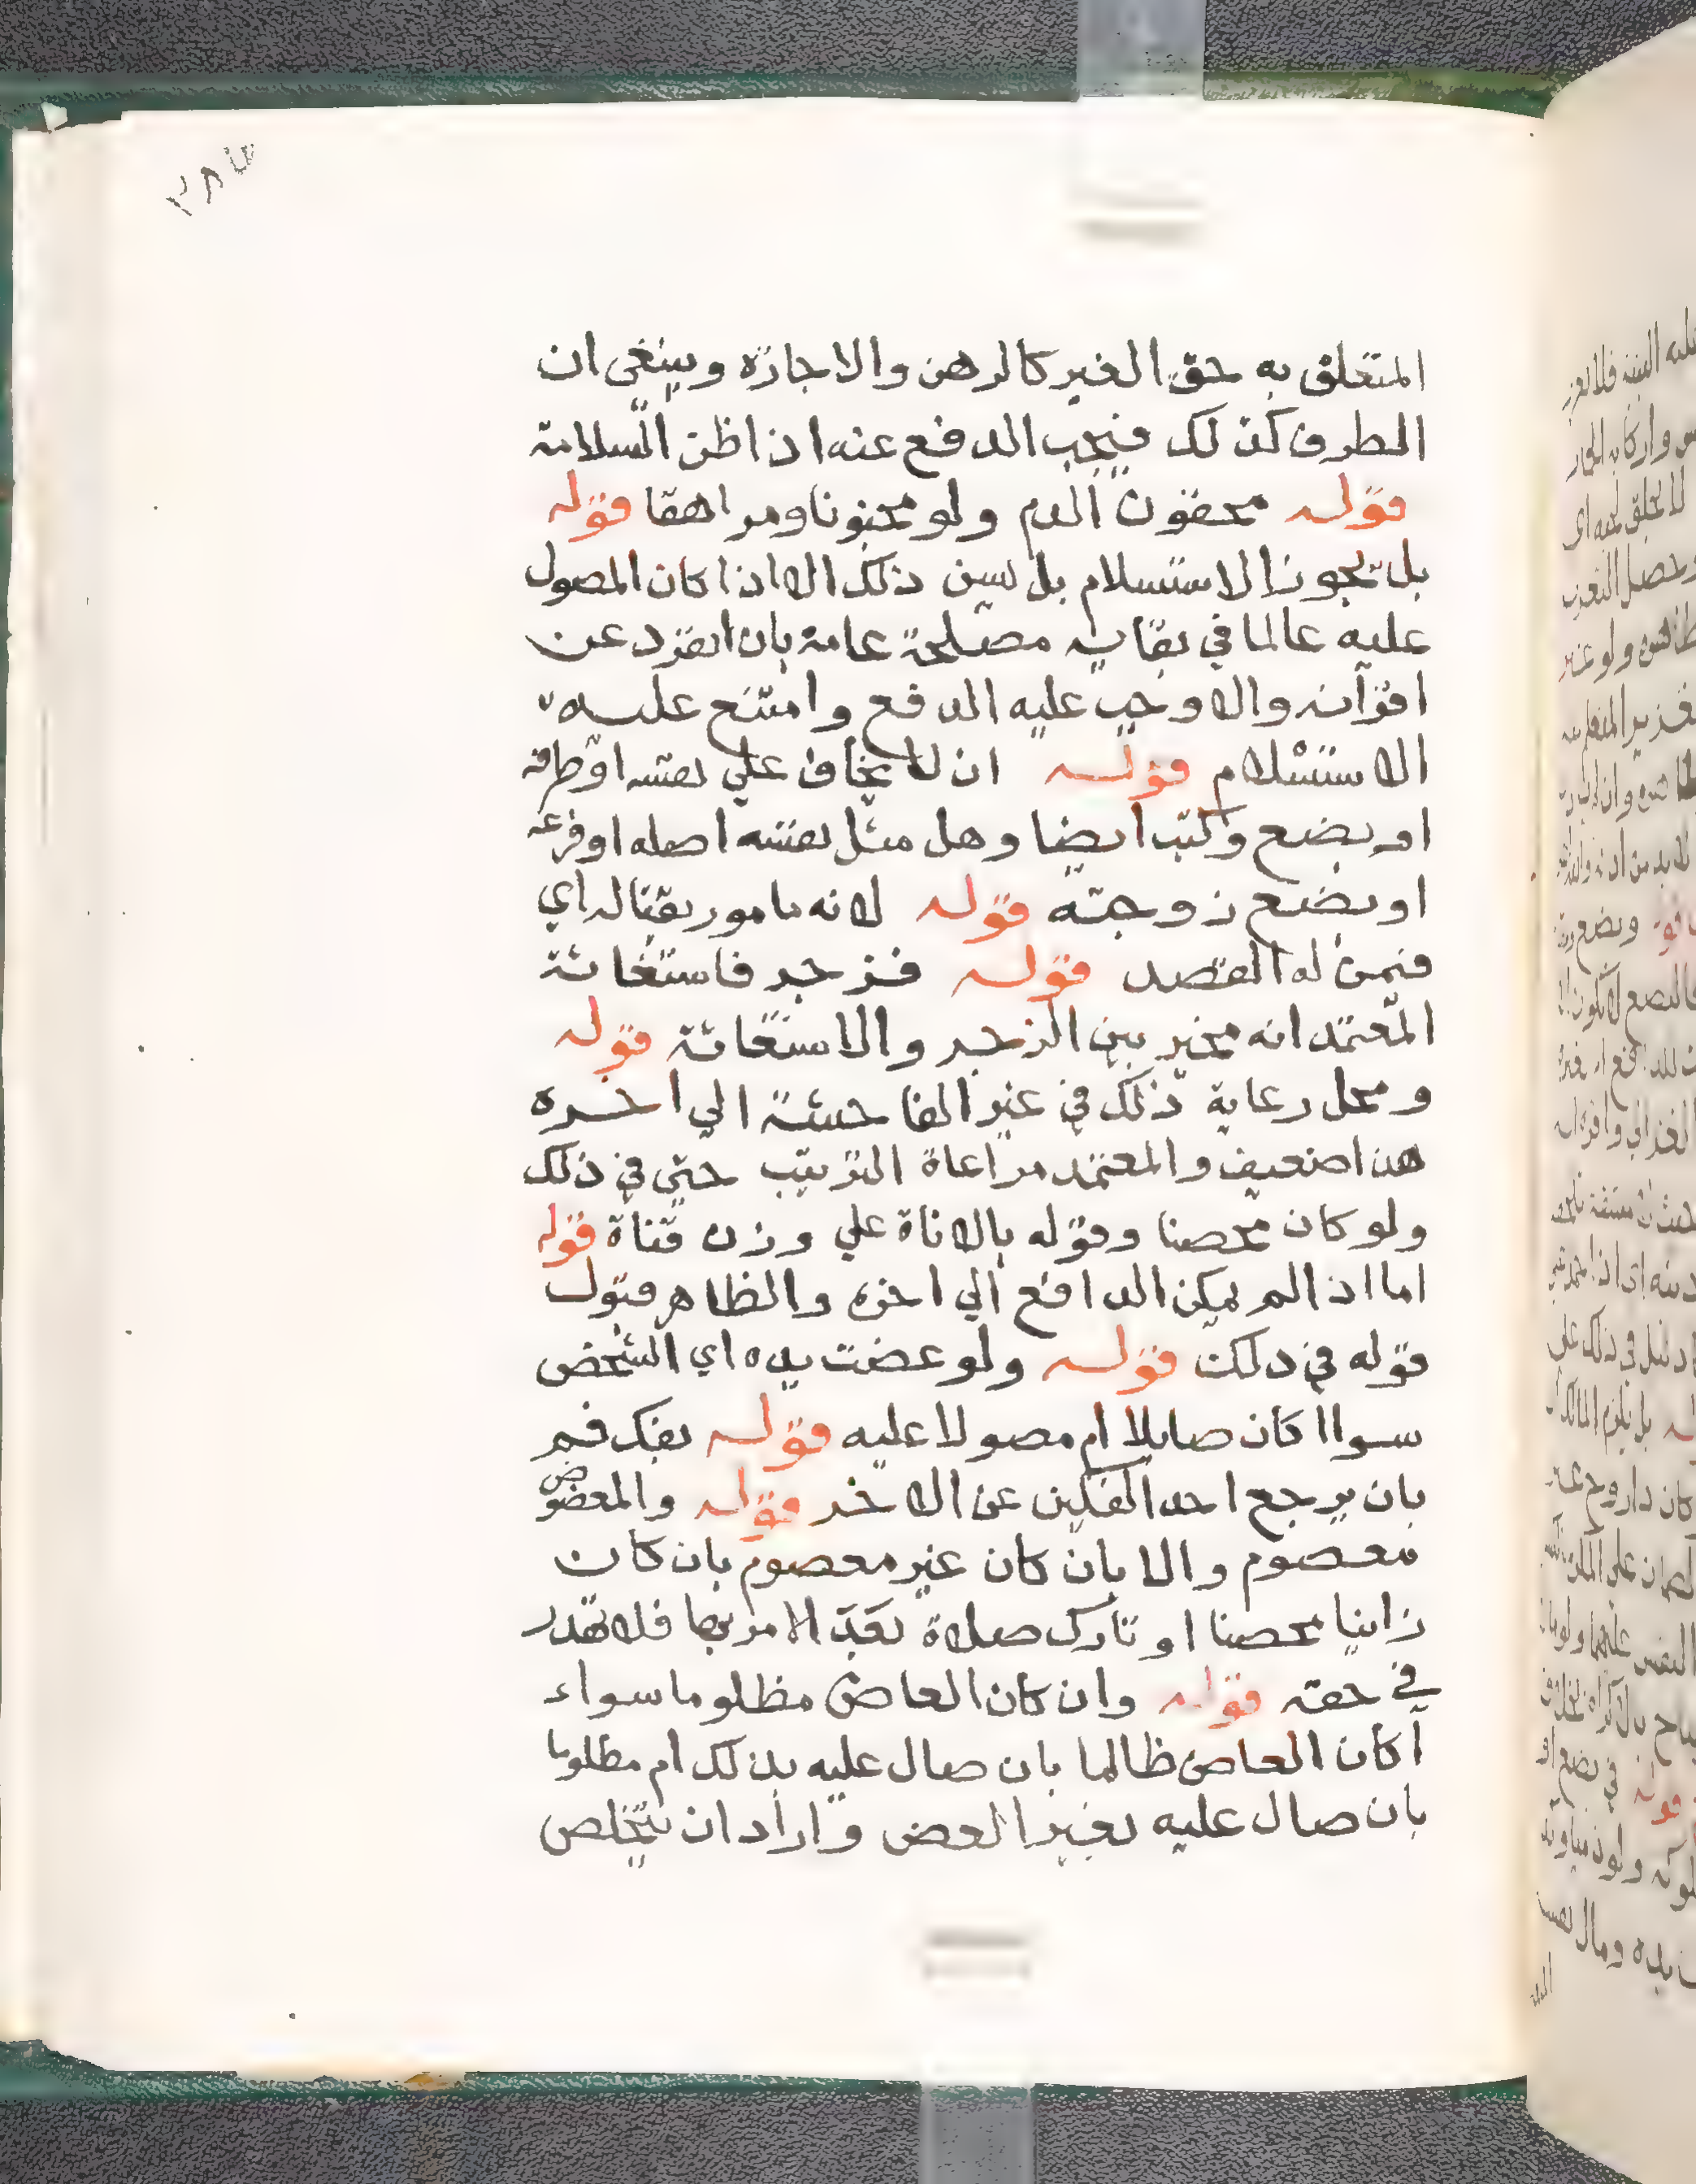 المتعلق به حق الغير كالرهن والاجارة وينبغي ان
الطرف كذلك فيجب الدفع عنه اذا ظن السلامة
قوله محقون الدم ولو مجنونا ومراهقا قوله
بل يجوز الاستسلام بل يسن ذلك الا اذا كان المصول
عليه عالما في بقايه مصلحة عامة بان انفرد عن
اقرانه والا وجب عليه الدفع وامتنع عليه
الاستسلام قوله ان لا يخاف علي نفسه او طرفه
او بضع وكتب ايضا وهل مثل نفسه اصله او فرعه
او بضع زوجته قوله لانه مامور بقتاله اي
فيمن له القصد قوله فزجر فاستغاثة
المعتمد انه مخير بين الزجر والاستغاثة قوله
ومحل رعاية ذلك في غير الفاحشة الي اخره
هذا ضعيف والمعتمد مراعاة الترتيب حتي في ذلك
ولو كان محصنا وقوله بالاناة علي وزن قناة قوله
اما اذا لم يمكن الدافع الي اخره والظاهر قبول
قوله في ذلك قوله ولو عضت يده اي الشخص
سواا كان صايلا ام مصولا عليه قوله بفك فم
بان يرجع احد الفكين عن الاخر قوله والمعضوض
معصوم والا بان كان غير معصوم بان كان
زانيا محصنا او تارك صلاة بعد الامر بها فلا تهدر
في حقه قوله وان كان العاض مظلوما سواء
اكان العاض ظالما بان صال عليه بذلك ام مظلوما
بان صال عليه بغير العض واراد ان يتخلص